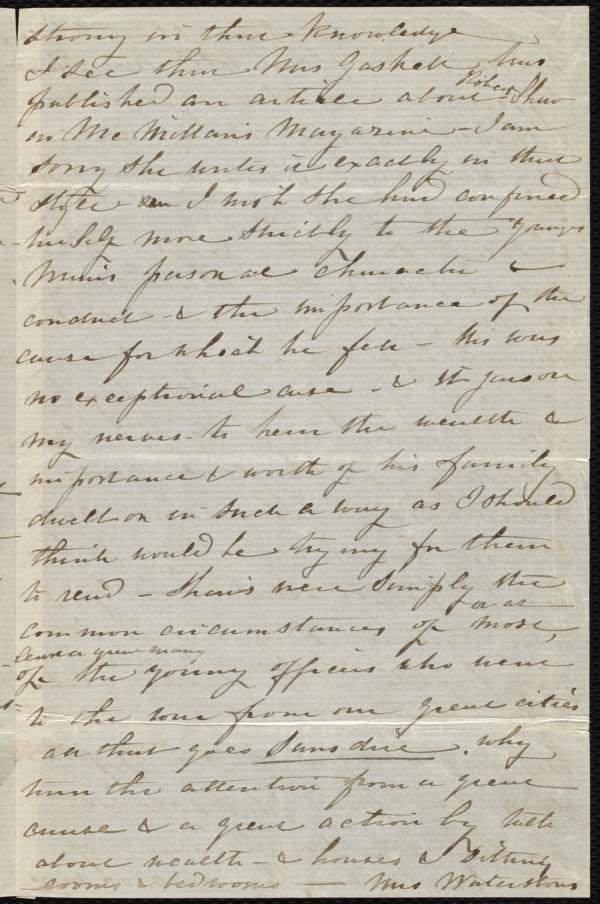 strong in their knowledge
I see that Mrs Gaskell has
published an article about Robert Shaw
in McMillan's Magazine - I am
sorry she writes it exactly in that
style I wish she had confined
herself more strictly to the young
man's personal character &
conduct - & the importance of the
cause for which he fell - his was
no exceptional case - & it jars on
my nerves - to hear the wealth &
importance & worth of his family
dwelt on in such a way as I should
think would be trying for them
to read - Shaw's were simply the
common circumstances of most, or at
least a great many
of the young officers who went
to the war from our great cities
all that goes sans dire. why
turn the attention from a great
cause & a great action by talk
about wealth - & houses & sitting
rooms & bedrooms — Mrs Waterstons